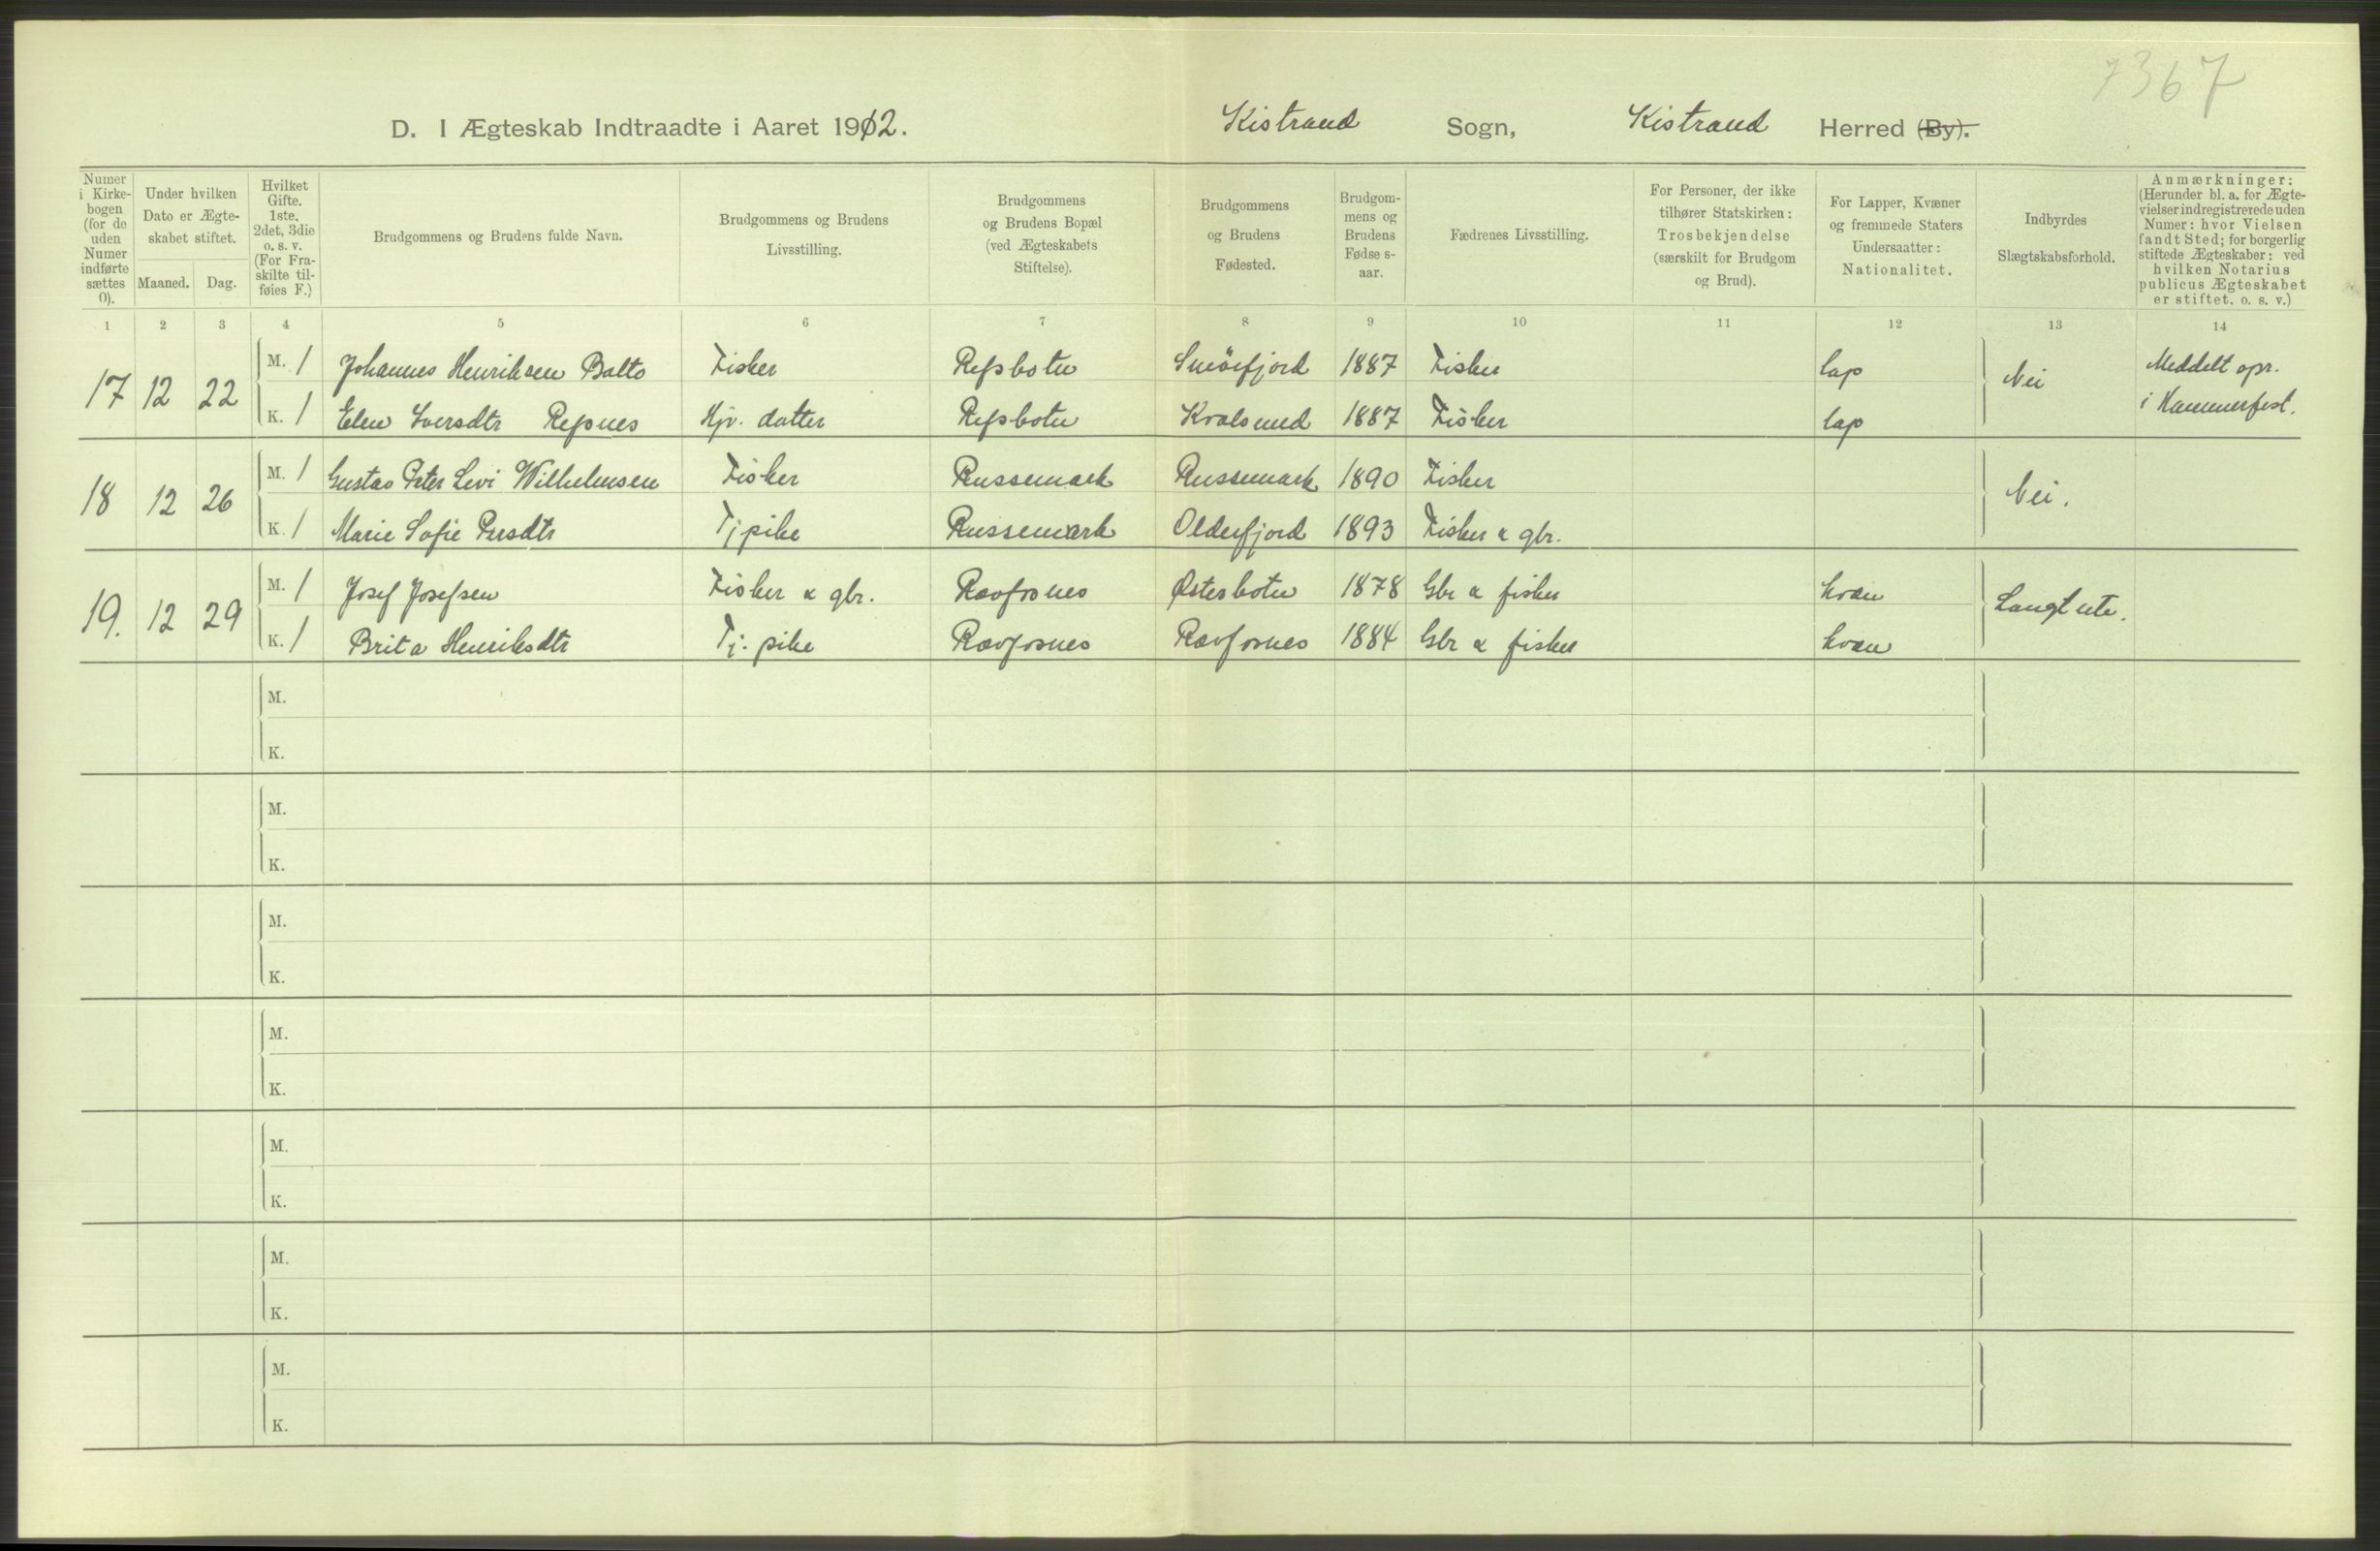 7367
D. I Ægteskab Indtraadte i Aaret 1912. Kistrand Sogn, Kistrand Herred (By).
Numer i Kirkebogen (for de uden Numer indførte sættes 0).
Under hvilken Dato er Ægteskabet stiftet.
Maaned. Dag.
Hvilket Gifte. 1ste. 2det, 3die o. s. v. (For Fraskilte tilføies F.)
Brudgommens og Brudens fulde Navn.
Brudgommens og Brudens Livsstilling.
Brudgommens og Brudens Bopæl (ved Ægteskabets Stiftelse).
Brudgommens og Brudens Fødested.
Brudgommens og Brudens Fødselsaar.
Fædrenes Livsstilling.
For Personer, der ikke tilhører Statskirken: Trosbekjendelse (særskilt for Brudgom og Brud).
For Lapper, Kvæner og fremmede Staters Undersaatter: Nationalitet.
Indbyrdes Slægtskabsforhold.
Anmærkninger: (Herunder bl. a. for Ægtevielser indregistrerede uden Numer: hvor Vielsen fandt Sted; for borgerlig stiftede Ægteskaber: ved hvilken Notarius publicus Ægteskabet er stiftet. o. s. v.)
1 2 3 4 5 6 7 8 9 10 11 12 13 14
17 12 22 M. 1 Johannes Henriksen Balto Fisker Refsbotn Smörfjord 1887 Fisker lap Nei Meddelt opr.
K. 1 Elen Iversdtr Refsnes Hjv. datter Refsbotn Kvalsund 1887 Fisker lap i Hammerfest.
18 12 26 M. 1 Gustav Peter Levi Wilhelmsen Fisker Russemark Russemark 1890 Fisker Nei.
K. 1 Marie Sofie Persdtr Tjpike Russemark Olderfjord 1893 Fisker & gbr.
19. 12 29 M. 1 Josef Josefsen Fisker & gbr. Ravfosnes Østerbotn 1878 Gbr & fisker kvæn Langt ute.
K. 1 Brita Henriksdtr Tj. pike Ravfosnes Ravfosnes 1884 Gbr & fisker kvæn
M.
K.
M.
K.
M.
K.
M.
K.
M.
K.
M.
K.
M.
K.